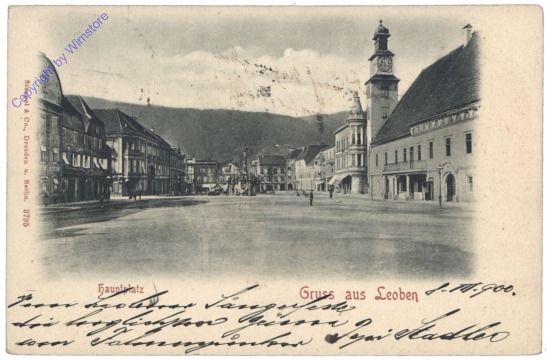 Copyright by Wimstore
Stengel & Co., Dresden u. Berlin. 3795
Hauptplatz
Gruss aus Leoben
8. VII. 900.
Vom Leobner Sängerfeste
die herzlichsten Grüsse
von
Stadler